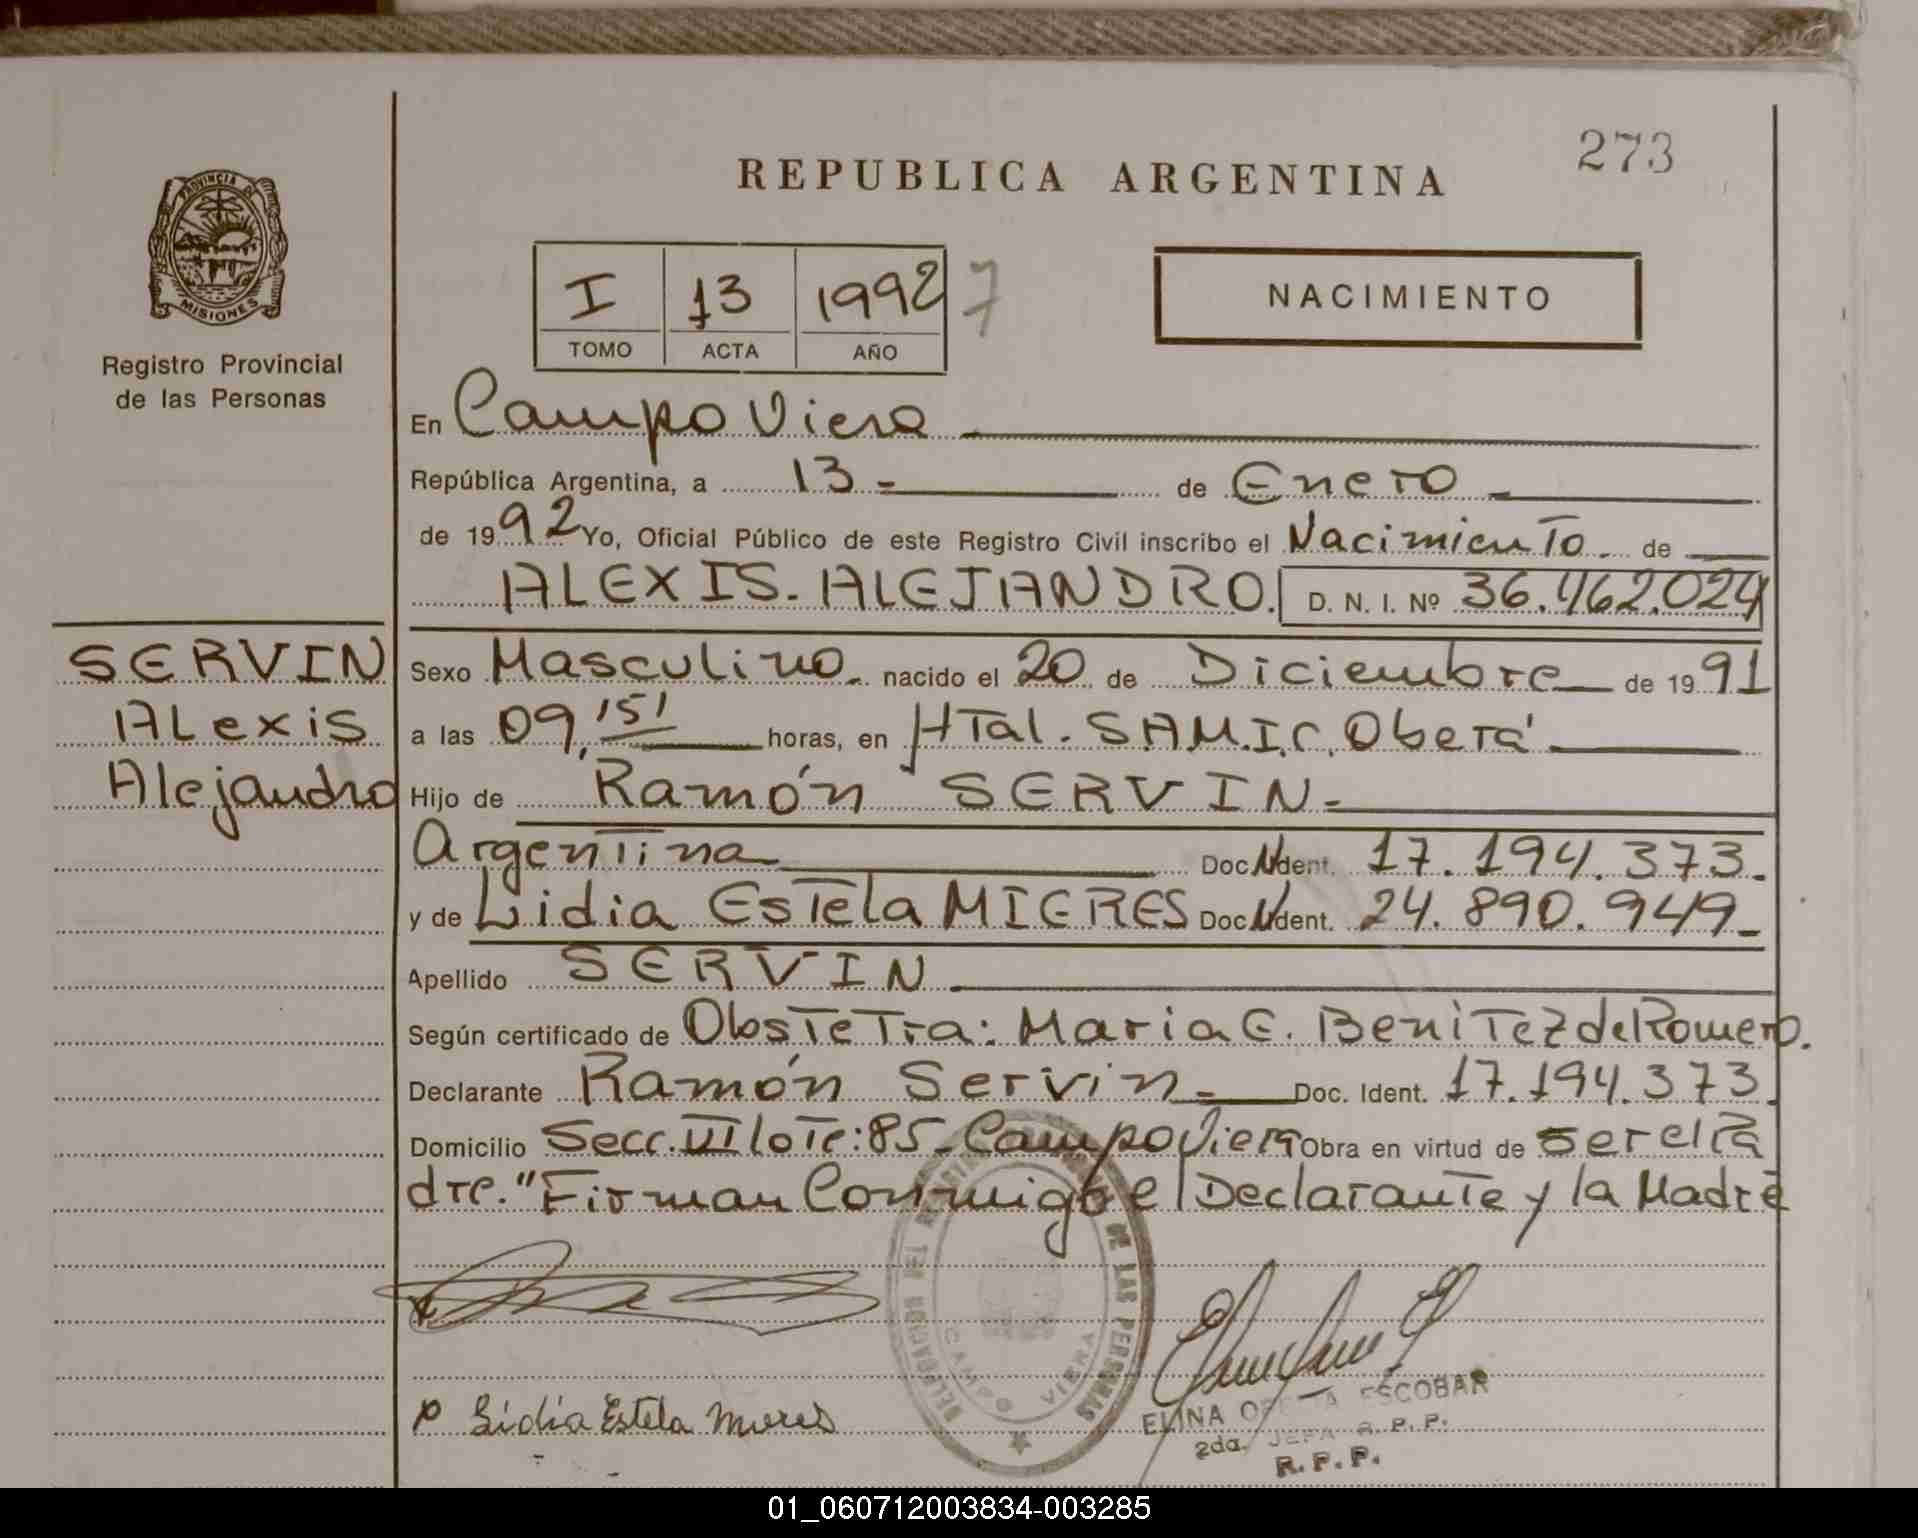 273
REPUBLICA ARGENTINA
PROVINCIA DE
MISIONES
Registro Provincial
de las Personas
I 13 1992 7
TOMO ACTA AÑO
NACIMIENTO
En Campo Viera
República Argentina, a 13 - de Enero
de 1992 Yo, Oficial Público de este Registro Civil inscribo el Nacimiento de
ALEXIS. ALEJANDRO. D. N. I. Nº 36.462.024
SERVIN
Alexis
Alejandro
Sexo Masculino nacido el 20 de Diciembre de 1991
a las 09,15' horas, en HTal. S.A.M.I.C. Oberá
Hijo de Ramón SERVIN-
Argentina Doc. Ident. 17.194.373.
y de Lidia Estela MIERES Doc. Ident. 24.890.949-
Apellido SERVIN
Según certificado de Obstetra: Maria E. Benitez de Romero.
Declarante Ramón Servin- Doc. Ident. 17.194.373.
Domicilio Secc. VII lote: 85- Campo Viera Obra en virtud de ser el Pa
dre." Firman Conmigo el Declarante y la Madre
DELEGACION DEL REGISTRO DE LAS PERSONAS
CAMPO VIERA
p Lidia Estela Mieres
ELINA ESCOBAR
2da. JEFA R.P.P.
R.P.P.
01_060712003834-003285